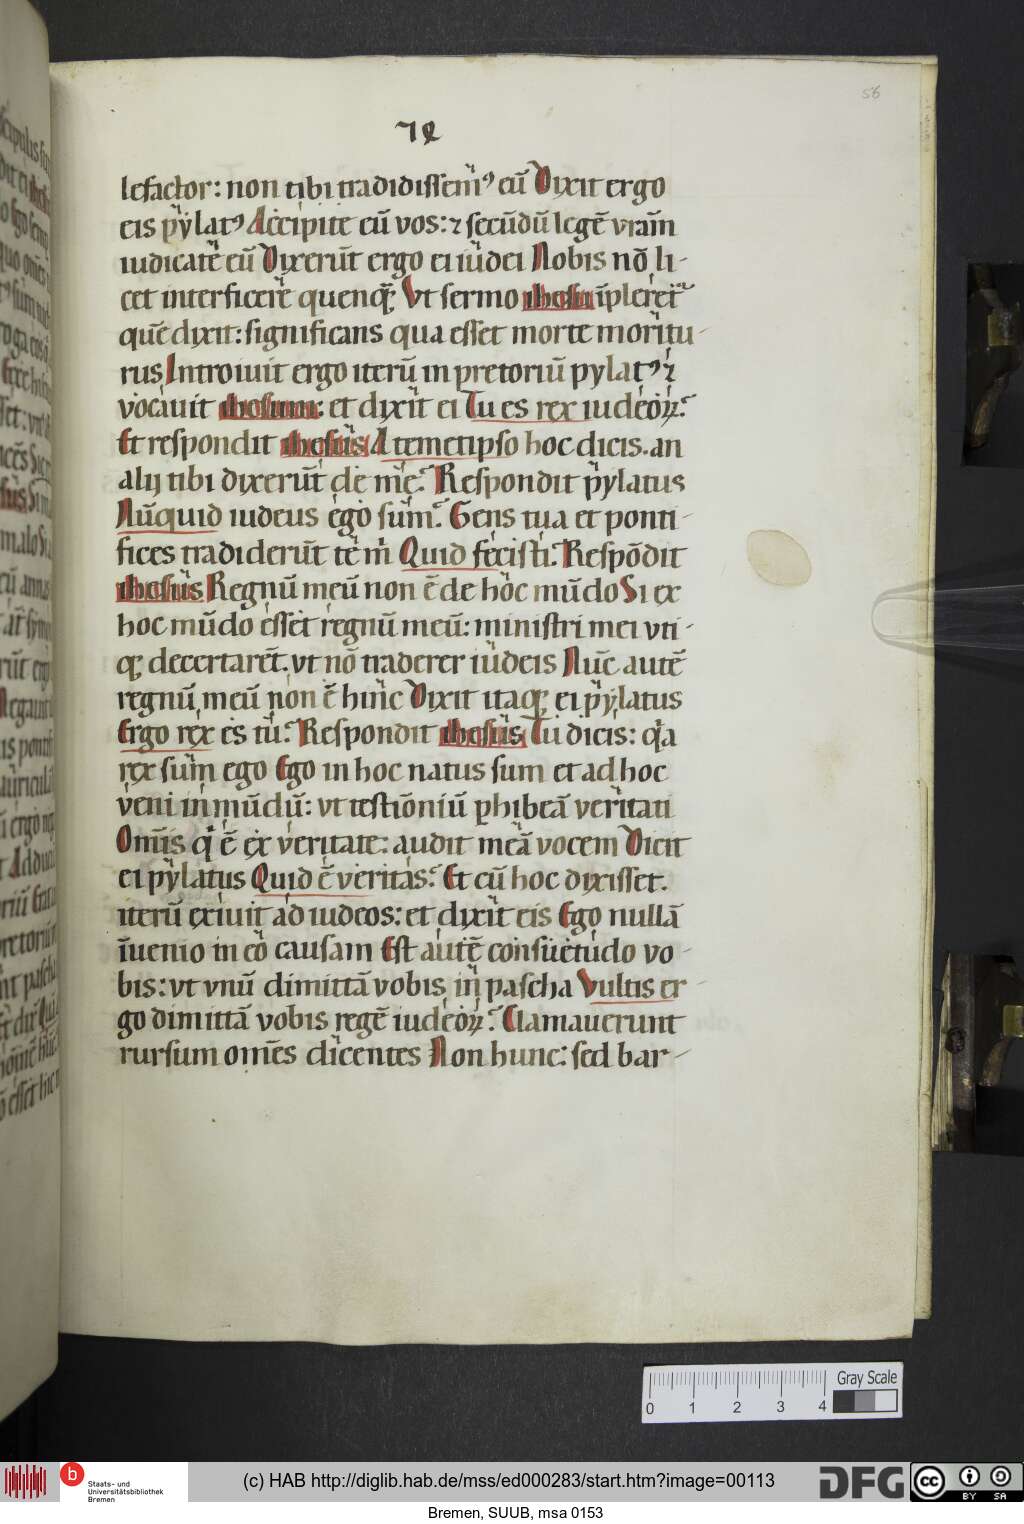 56
lefactor: non tibi tradidissem᷒ꝰ eū Dixit ergo
eis pylatꝰ Accipite eū vos: ⁊ secūdū legē vrām
iudicate eū Dixerūt ergo ei iudei Nobis nō li-
cet interficere quenqꝫ Vt sermo ihesu īpleret̉
quē dixit: significans qua esset morte moritu-
rus Introiuit ergo iterū in pretoriū pylatꝰ ⁊
vocauit ihesum: et dixit ei Tu es rex iudeoꝝ?
Et respondit ihesus A temetipso hoc dicis. an
alij tibi dixerūt de me? Respondit pylatus
Nūquid iudeus ego sum? Gens tua et ponti-
fices tradiderūt te m̄ Quid fecisti? Respōdit
ihesus Regnū meū non ē de hoc mūdo Si ex
hoc mūdo esset regnū meū: ministri mei vti-
qꝫ decertarēt. vt nō traderer iudeis Nūc autē
regnū meū non ē hinc Dixit itaqꝫ ei pylatus
Ergo rex es tu? Respondit ihesus Tu dicis: qͣa
rex sum ego Ego in hoc natus sum et ad hoc
veni in mūdū: vt testimōniū ꝑhibeā veritati
Omīs qͥ ē ex veritate: audit meā vocem Dicit
ei pylatus Quid ē veritas? Et cū hoc dixisset.
iterū exiuit ad iudeos: et dixit eis Ego nullā
īuenio in eō causam Est autē consuetudo vo-
bis: vt vnū dimittā vobis in pascha Vultis er-
go dimittā vobis regē iudeoꝝ? Clamauerunt
rursum omēs dicentes Non hunc: sed bar-
Gray Scale
0 1 2 3 4
b
Staats- und
Universitätsbibliothek
Bremen
(c) HAB http://diglib.hab.de/mss/ed000283/start.htm?image=00113
DFG
cc
BY SA
Bremen, SUUB, msa 0153